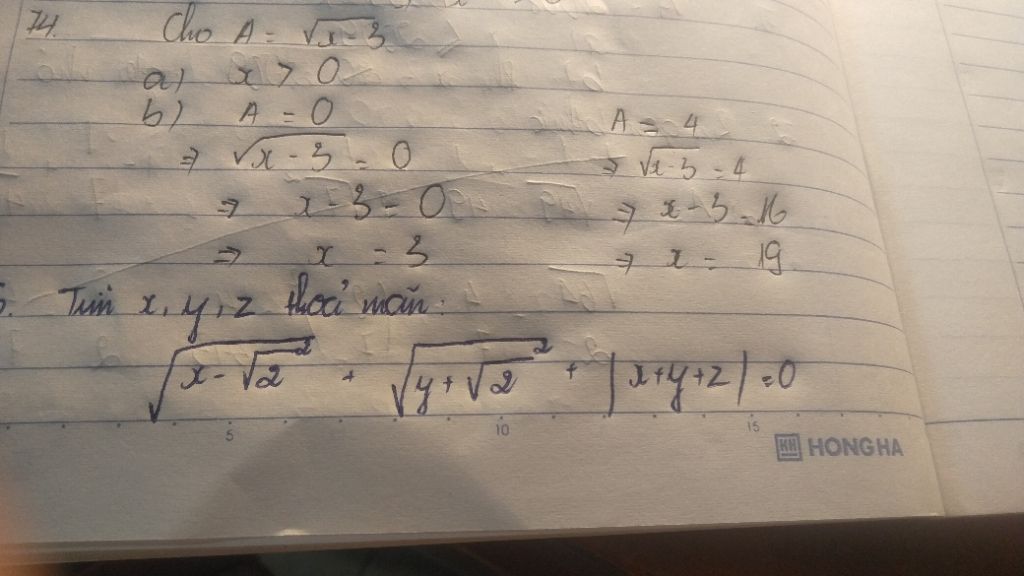 74. Cho A = √x-3
a) x > 0
b) A = 0
⇒ √x - 3 = 0
⇒ x - 3 = 0
⇒ x = 3
A = 4
⇒ √x-3 = 4
⇒ x - 3 = 16
⇒ x = 19
5. Tìm x, y, z thoả mãn:
√(x-√2)² + √(y+√2)² + |x+y+z| = 0
5 10 15
HONG HA